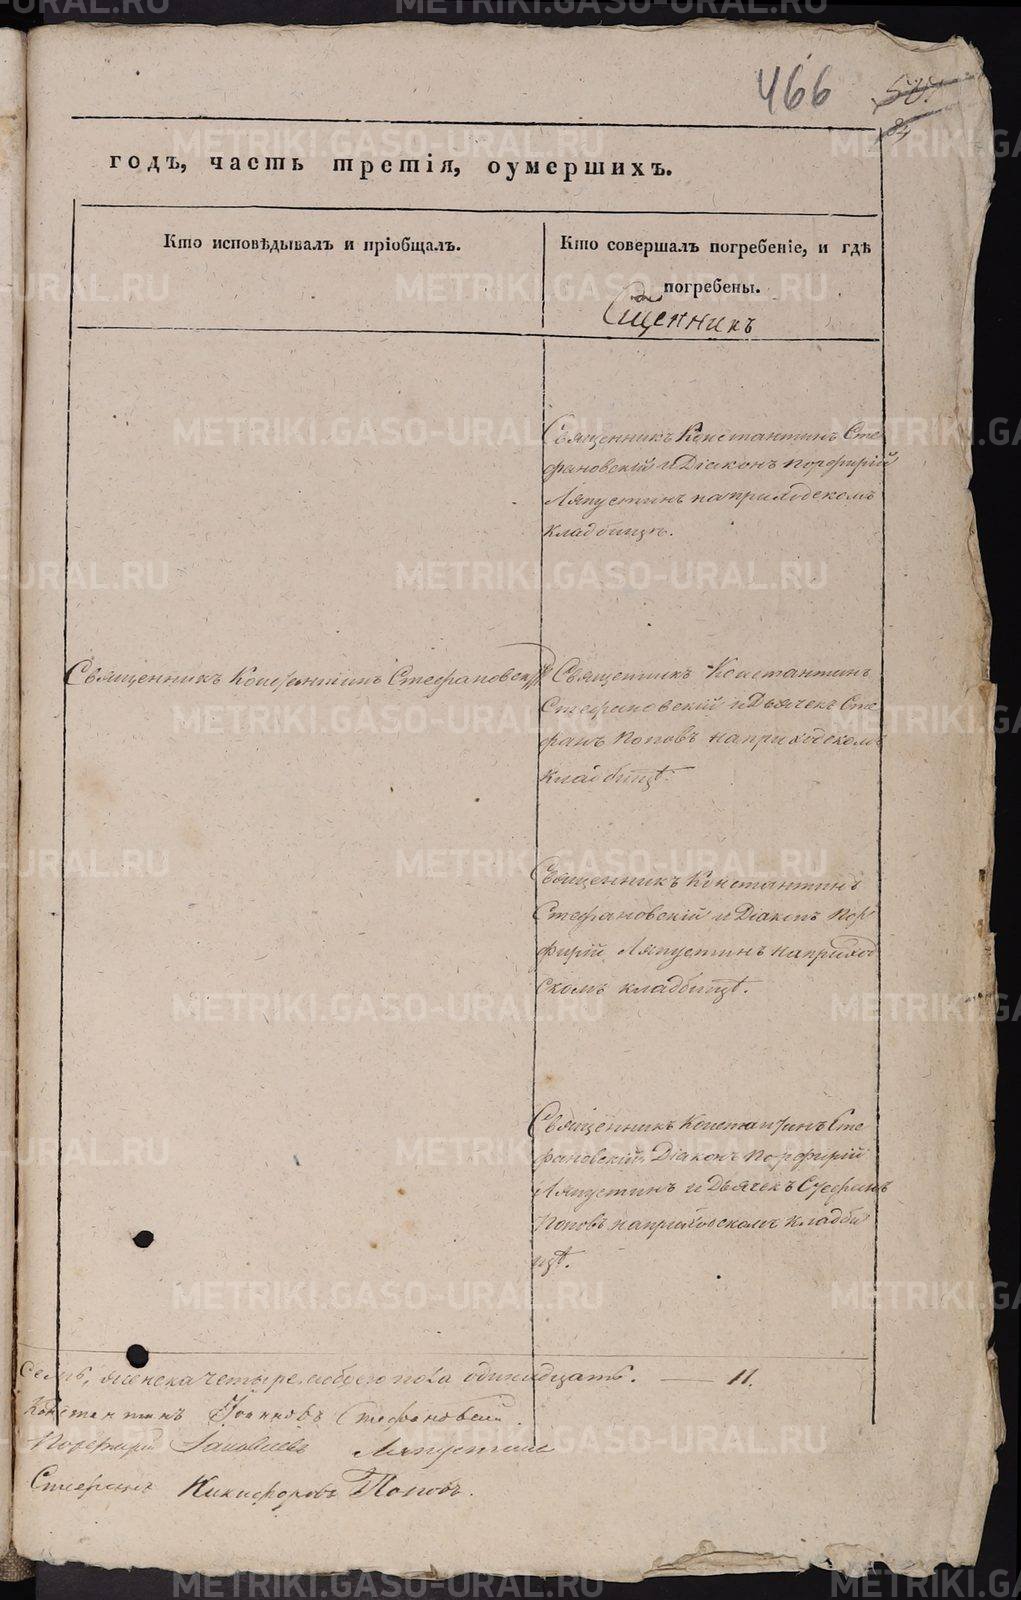 466
50.
84
годъ, часть третія, оумершихъ.
Кто исповѣдывалъ и пріобщалъ.
Кто совершалъ погребеніе, и гдѣ
погребены.
Сщенникъ
Священникъ Константинъ Сте
фановскій и Діаконъ Порфирій
Ляпустинъ на приходскомъ
кладбищѣ.
Священникъ Константинъ Стефановскій
Священникъ Константинъ
Стефановскій и Дьячекъ Сте
фанъ Поповъ на приходскомъ
кладбищѣ.
Священникъ Константинъ
Стефановскій и Діаконъ Пор
фирій Ляпустинъ на приход
скомъ кладбищѣ.
Священникъ Константинъ Сте
фановскій, Діаконъ Порфирій
Ляпустинъ и Дьячекъ Стефанъ
Поповъ на приходскомъ кладби
щѣ.
семь, женска четыре, обоего пола одинадцать. — 11.
Константинъ Іоанновъ Стефановскій.
Порфирій Ляпустинъ
Стефанъ Никифоровъ Поповъ.
METRIKI.GASO-URAL.RU